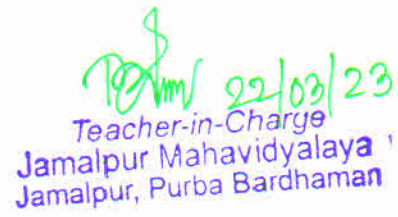 22/03/23
Teacher-in-Charge
Jamalpur Mahavidyalaya
Jamalpur, Purba Bardhaman